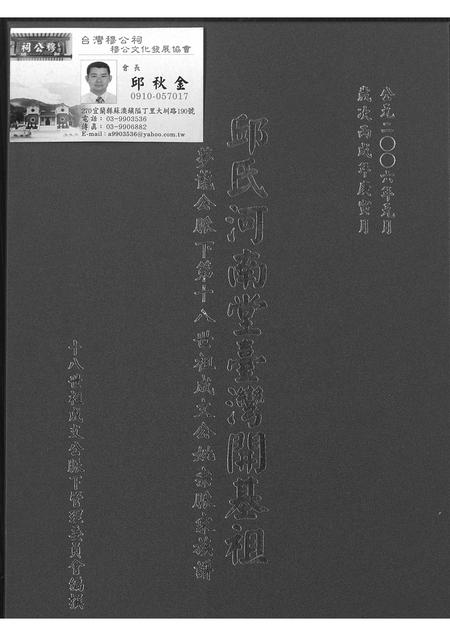 穆公祠
台灣穆公祠
穆公文化發展協會
會長
邱秋金
0910-057017
270宜蘭縣蘇澳鎮隘丁里大圳路190號
電話：03-9903536
傳真：03-9906882
E-mail：a9903536@yahoo.com.tw
公元二〇〇六年元月
歲次丙戌年庚寅月
邱氏河南堂臺灣開基祖
夢龍公脈下第十八世祖成文公妣宗脈家族譜
十八世祖成文公脈下管理委員會編撰